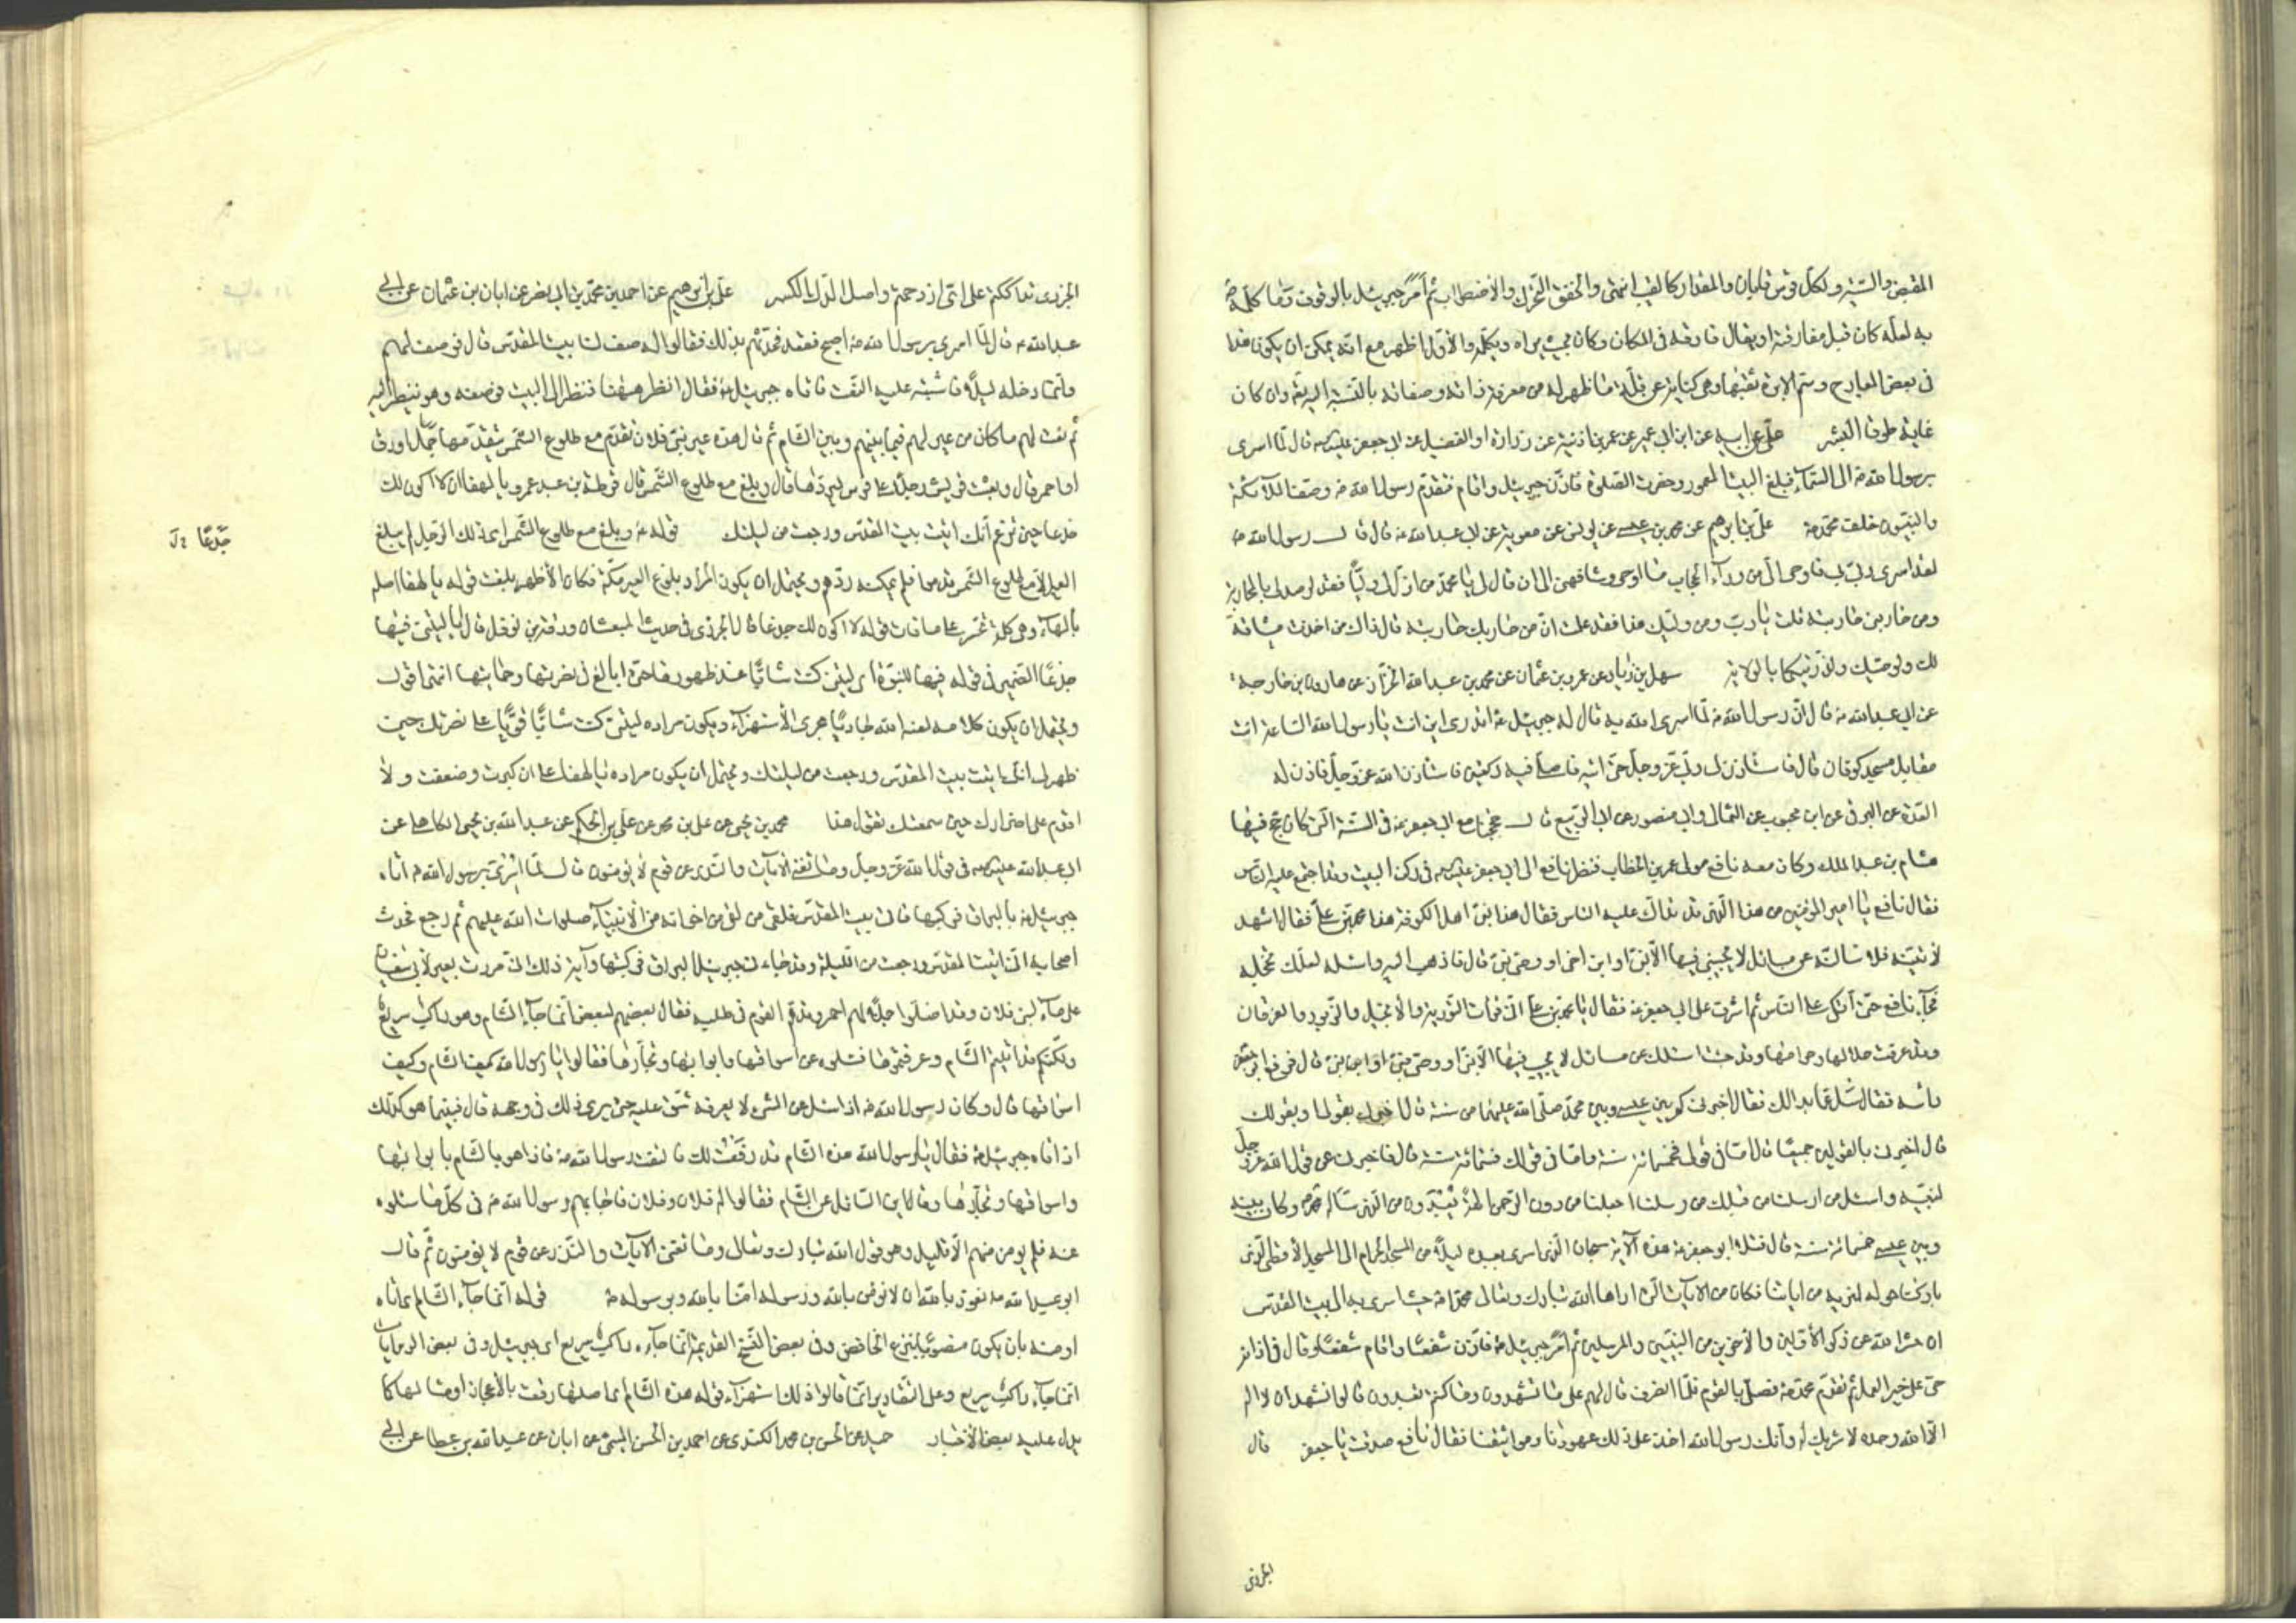 المقبض والسية ولكل قوس قابان والمقدار كالقيب انتهى والخفق التحرك والاضطراب ثم امر جبرئيل بالوقوف وما كلمه
به لعله كان قبل مفارقته او يقال فارقه في المكان وكان بحيث يراه ويكلمه والاول اظهر مع انه يمكن ان يكون هذا
في بعض المعارج وسم الابرة ثقبها وهي كناية عن قلة ما ظهر له من معرفة ذاته وصفاته بالنسبة اليه تعالى وان كان
غاية طوق البشر علي عن ابيه عن ابن ابي عمير عن عمر بن اذينة عن زرارة او الفضيل عن ابي جعفر عليه السلام قال لما اسرى
برسول الله ص الى السماء فبلغ البيت المعمور وحضرت الصلوة فاذن جبرئيل واقام فتقدم رسول الله ص وصف الملائكة
والنبيون خلف محمد ص علي بن ابرهيم عن محمد بن عيسى عن يونس عن معوية عن ابي عبد الله ع قال قال رسول الله ص
لقد اسرى ربي بي فاوحى الي من وراء الحجاب ما اوحى وشافهني الى ان قال لي يا محمد من اذل لي وليا فقد ارصد لي بالمحاربة
ومن حاربني حاربته قلت يا رب ومن وليك هذا فقد علمت ان من حاربك حاربته قال ذاك من اخذت ميثاقه
لك ولوصيك ولذريتكما بالولاية سهل بن زياد عن عمرو بن عثمان عن محمد بن عبد الله الخزاز عن هارون بن خارجة
عن ابي عبد الله ع قال ان رسول الله ص لما اسرى الله به قال له جبرئيل ع اتدري اين انت يا رسول الله الساعة انت
مقابل مسجد كوفان قال فاستاذن لي ربي عز وجل حتى اتيه فاصلي فيه ركعتين فاستاذن الله عز وجل فاذن له
العدة عن البرقي عن ابن محبوب عن الثمالي وابي منصور عن ابي الربيع قال حججنا مع ابي جعفر ع في السنة التي كان حج فيها
هشام بن عبد الملك وكان معه نافع مولى عمر بن الخطاب فنظر نافع الى ابي جعفر عليه السلام في ركن البيت وقد اجتمع عليه الناس
فقال نافع يا امير المؤمنين من هذا الذي قد تداك عليه الناس فقال هذا نبي اهل الكوفة هذا محمد بن علي فقال اشهد
لاتينه فلاسالنه عن مسائل لا يجيبني فيها الا نبي او ابن نبي او وصي نبي قال فاذهب اليه واسئله لعلك تخجله
فجاء نافع حتى اتكى على الناس ثم اشرف على ابي جعفر ع فقال يا محمد بن علي اني قرات التورية والانجيل والزبور والفرقان
وقد عرفت حلالها وحرامها وقد جئت اسئلك عن مسائل لا يجيب فيها الا نبي او وصي نبي او ابن نبي قال فرفع ابو جعفر
راسه فقال سل عما بدا لك فقال اخبرني كم بين عيسى وبين محمد صلى الله عليهما من سنة قال اخبرك بقولي او بقولك
قال اخبرني بالقولين جميعا قال اما في قولي فخمسمائة سنة واما في قولك فستمائة سنة قال فاخبرني عن قول الله عز وجل
لنبيه واسئل من ارسلنا من قبلك من رسلنا اجعلنا من دون الرحمن الهة يعبدون من الذي ساله محمد ص وكان بينه
وبين عيسى خمسمائة سنة قال فتلا ابو جعفر ع هذه الآية سبحان الذي اسرى بعبده ليلا من المسجد الحرام الى المسجد الاقصى الذي
باركنا حوله لنريه من اياتنا فكان من الآيات التي اراها الله تبارك وتعالى محمدا ص حيث اسرى به الى البيت المقدس
ان حشر الله عن ذكره الاولين والاخرين من النبيين والمرسلين ثم امر جبرئيل ع فاذن شفعا واقام شفعا وقال في اذانه
حي على خير العمل ثم تقدم محمد ص فصلى بالقوم فلما انصرف قال لهم على ما تشهدون وما كنتم تعبدون قالوا نشهد ان لا اله
الا الله وحده لا شريك له وانك رسول الله اخذ على ذلك عهودنا ومواثيقنا فقال نافع صدقت يا جعفر قال
الجزري
الجزري تداككتم على اي ازدحمتم واصل الدك الكسر علي بن ابرهيم عن احمد بن محمد بن ابي نصر عن ابان بن عثمان عن ابي
عبد الله ع قال لما اسري برسول الله ص اصبح فقعد فحدثهم بذلك فقالوا له صف لنا بيت المقدس قال فوصف لهم
وانما دخله ليلا فاشتبه عليه النعت فاتاه جبرئيل ع فقال انظر ههنا فنظر الى البيت فوصفه وهو ينظر اليه
ثم نعت لهم ما كان من عير لهم فيما بينهم وبين الشام ثم قال هذه عير بني فلان تقدم مع طلوع الشمس يتقدمها جمل اورق
او احمر قال وبعث قريش رجلا على فرس ليردها قال وبلغ مع طلوع الشمس قال قرطة بن عبد عمرو يا لهفا ان لا اكون لك
جذعا حين تزعم انك اتيت بيت المقدس ورجعت من ليلتك قوله ع وبلغ مع طلوع الشمس اي ذلك الرجل لم يبلغ
العير الا مع طلوع الشمس قدومها فلم يمكنه ردهم ويحتمل ان يكون المراد بلوغ العير مكة فكان الاظهر بلغت قوله يا لهفا اصله
بالهاء وهي كلمة تحسر على ما فات قوله لا اكون لك جذعا قال الجزري في حديث المبعث ان ورقة بن نوفل قال يا ليتني فيها
جذعا الضمير في قوله فيها للنبوة اي ليتني كنت شابا عند ظهورها حتى ابالغ في نصرتها وحمايتها انتهى اقول
ويحتمل ان يكون كلامه لعنه الله جاريا مجرى الاستهزاء ويكون مراده ليتني كنت شابا قويا على نصرتك حين
ظهر لي انك اتيت بيت المقدس ورجعت من ليلتك ويحتمل ان يكون مراده يا لهفا على ان كبرت وضعفت ولا
اقدم على اضرارك حين سمعتك تقول هذا محمد بن يحيى عن علي بن الحكم عن عبد الله بن يحيى الكاهلي عن
ابي عبد الله عليه السلام في قول الله عز وجل وما تغني الآيات والنذر عن قوم لا يؤمنون قال لما اسري برسول الله ص اتاه
جبرئيل ع بالبراق فركبها فاتى بيت المقدس فلقي من لقي من اخوانه من الانبياء صلوات الله عليهم ثم رجع فحدث
اصحابه اني اتيت بيت المقدس ورجعت من الليلة وقد جاءني جبرئيل بالبراق فركبتها وآية ذلك اني مررت بعير لابي سفيان
على ماء لبني فلان وقد اضلوا جملا لهم احمر وقد هم القوم في طلبه فقال بعضهم لبعض انما جاء الشام وهو راكب سريع
ولكنكم قد اتيتم الشام وعرفتموها فسلوه عن اسواقها وابوابها وتجارها فقالوا يا رسول الله كيف الشام وكيف
اسواقها قال وكان رسول الله ص اذا سئل عن الشيء لا يعرفه شق عليه حتى يرى ذلك في وجهه قال فبينما هو كذلك
اذ اتاه جبرئيل ع فقال يا رسول الله هذه الشام قد رفعت لك فالتفت رسول الله ص فاذا هو بالشام بابوابها
واسواقها وتجارها وقال اين السائل عن الشام فقالوا له فلان وفلان فاجابهم رسول الله ص في كل ما سئلوه
عنه فلم يومن منهم الا قليل وهو قول الله تبارك وتعالى وما تغني الآيات والنذر عن قوم لا يؤمنون ثم قال
ابو عبد الله ع نعوذ بالله ان لا نؤمن بالله ورسوله امنا بالله وبرسوله ص قوله انما جاء الشام اي اتاه
او منه بان يكون منصوبا بنزع الخافض وفي بعض النسخ القديمة انما جاءه راكب سريع اي جبرئيل وفي بعض الروايات
انما جاء راكب سريع وعلى التقادير انما قالوا ذلك استهزاء قوله هذه الشام اي اصلها رفعت بالاعجاز او مثالها كما
يدل عليه بعض الاخبار حميد عن الحسن بن محمد الكندي عن احمد بن الحسن الميثمي عن ابان عن عبد الله بن عطا عن ابي
جذعا